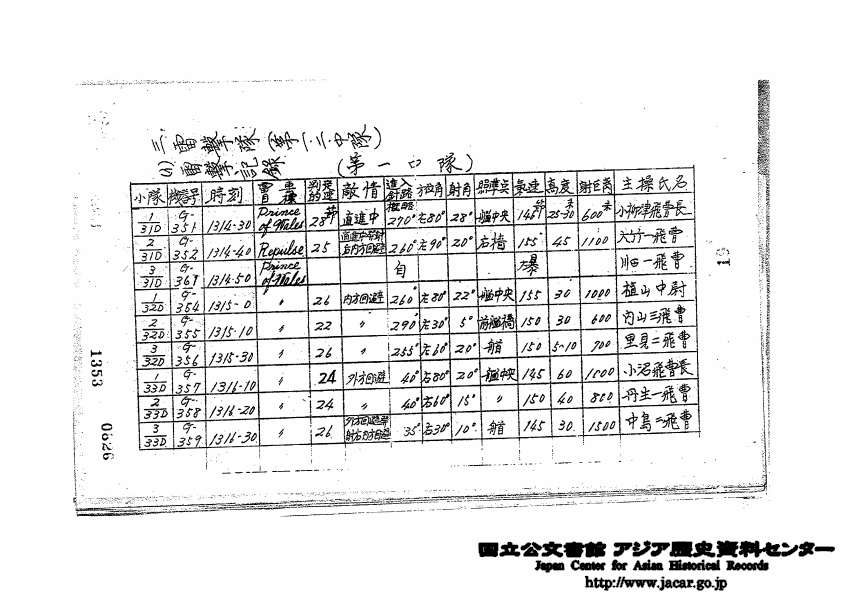 三.雷撃隊(第一、二中隊)
(1) 雷撃記録 (第一中隊)
小隊 機番号 時刻 雷撃艦種 判定的速 敵情 進入針路 方位角 射角 照準点 氣速 高度 射距离 主操氏名
概略
1/31D G-351 1314-30 Prince of Wales 28節 直進中 270° 右80° 28° 艦中央 148節 25-30米 600米 小柳津飛曹長
2/31D G-352 1314-40 Repulse 25 260° 右90° 20° 右檣 155 45 1100 大竹一飛曹
3/31D G-367 1314-50 Prince of Wales 自 爆 川田一飛曹
1/32D G-354 1315-0 〃 26 内方回避 260° 左80° 22° 艦中央 155 30 1000 植山中尉
2/32D G-355 1315-10 〃 22 〃 290° 左30° 5° 前艦橋 150 30 600 内山三飛曹
3/32D G-356 1315-30 〃 26 〃 255° 左60° 20° 艏 150 5-10 700 里見二飛曹
1/33D G-357 1316-10 〃 24 外方回避 40° 右80° 20° 艦中央 145 60 1500 小沼飛曹長
2/33D G-358 1316-20 〃 24 〃 40° 右60° 15° 〃 150 40 800 丹生一飛曹
3/33D G-359 1316-30 〃 26 35° 右30° 10° 艏 145 30 1500 中島二飛曹
19
1353 0626
国立公文書館 アジア歴史資料センター
Japan Center for Asian Historical Records
http://www.jacar.go.jp